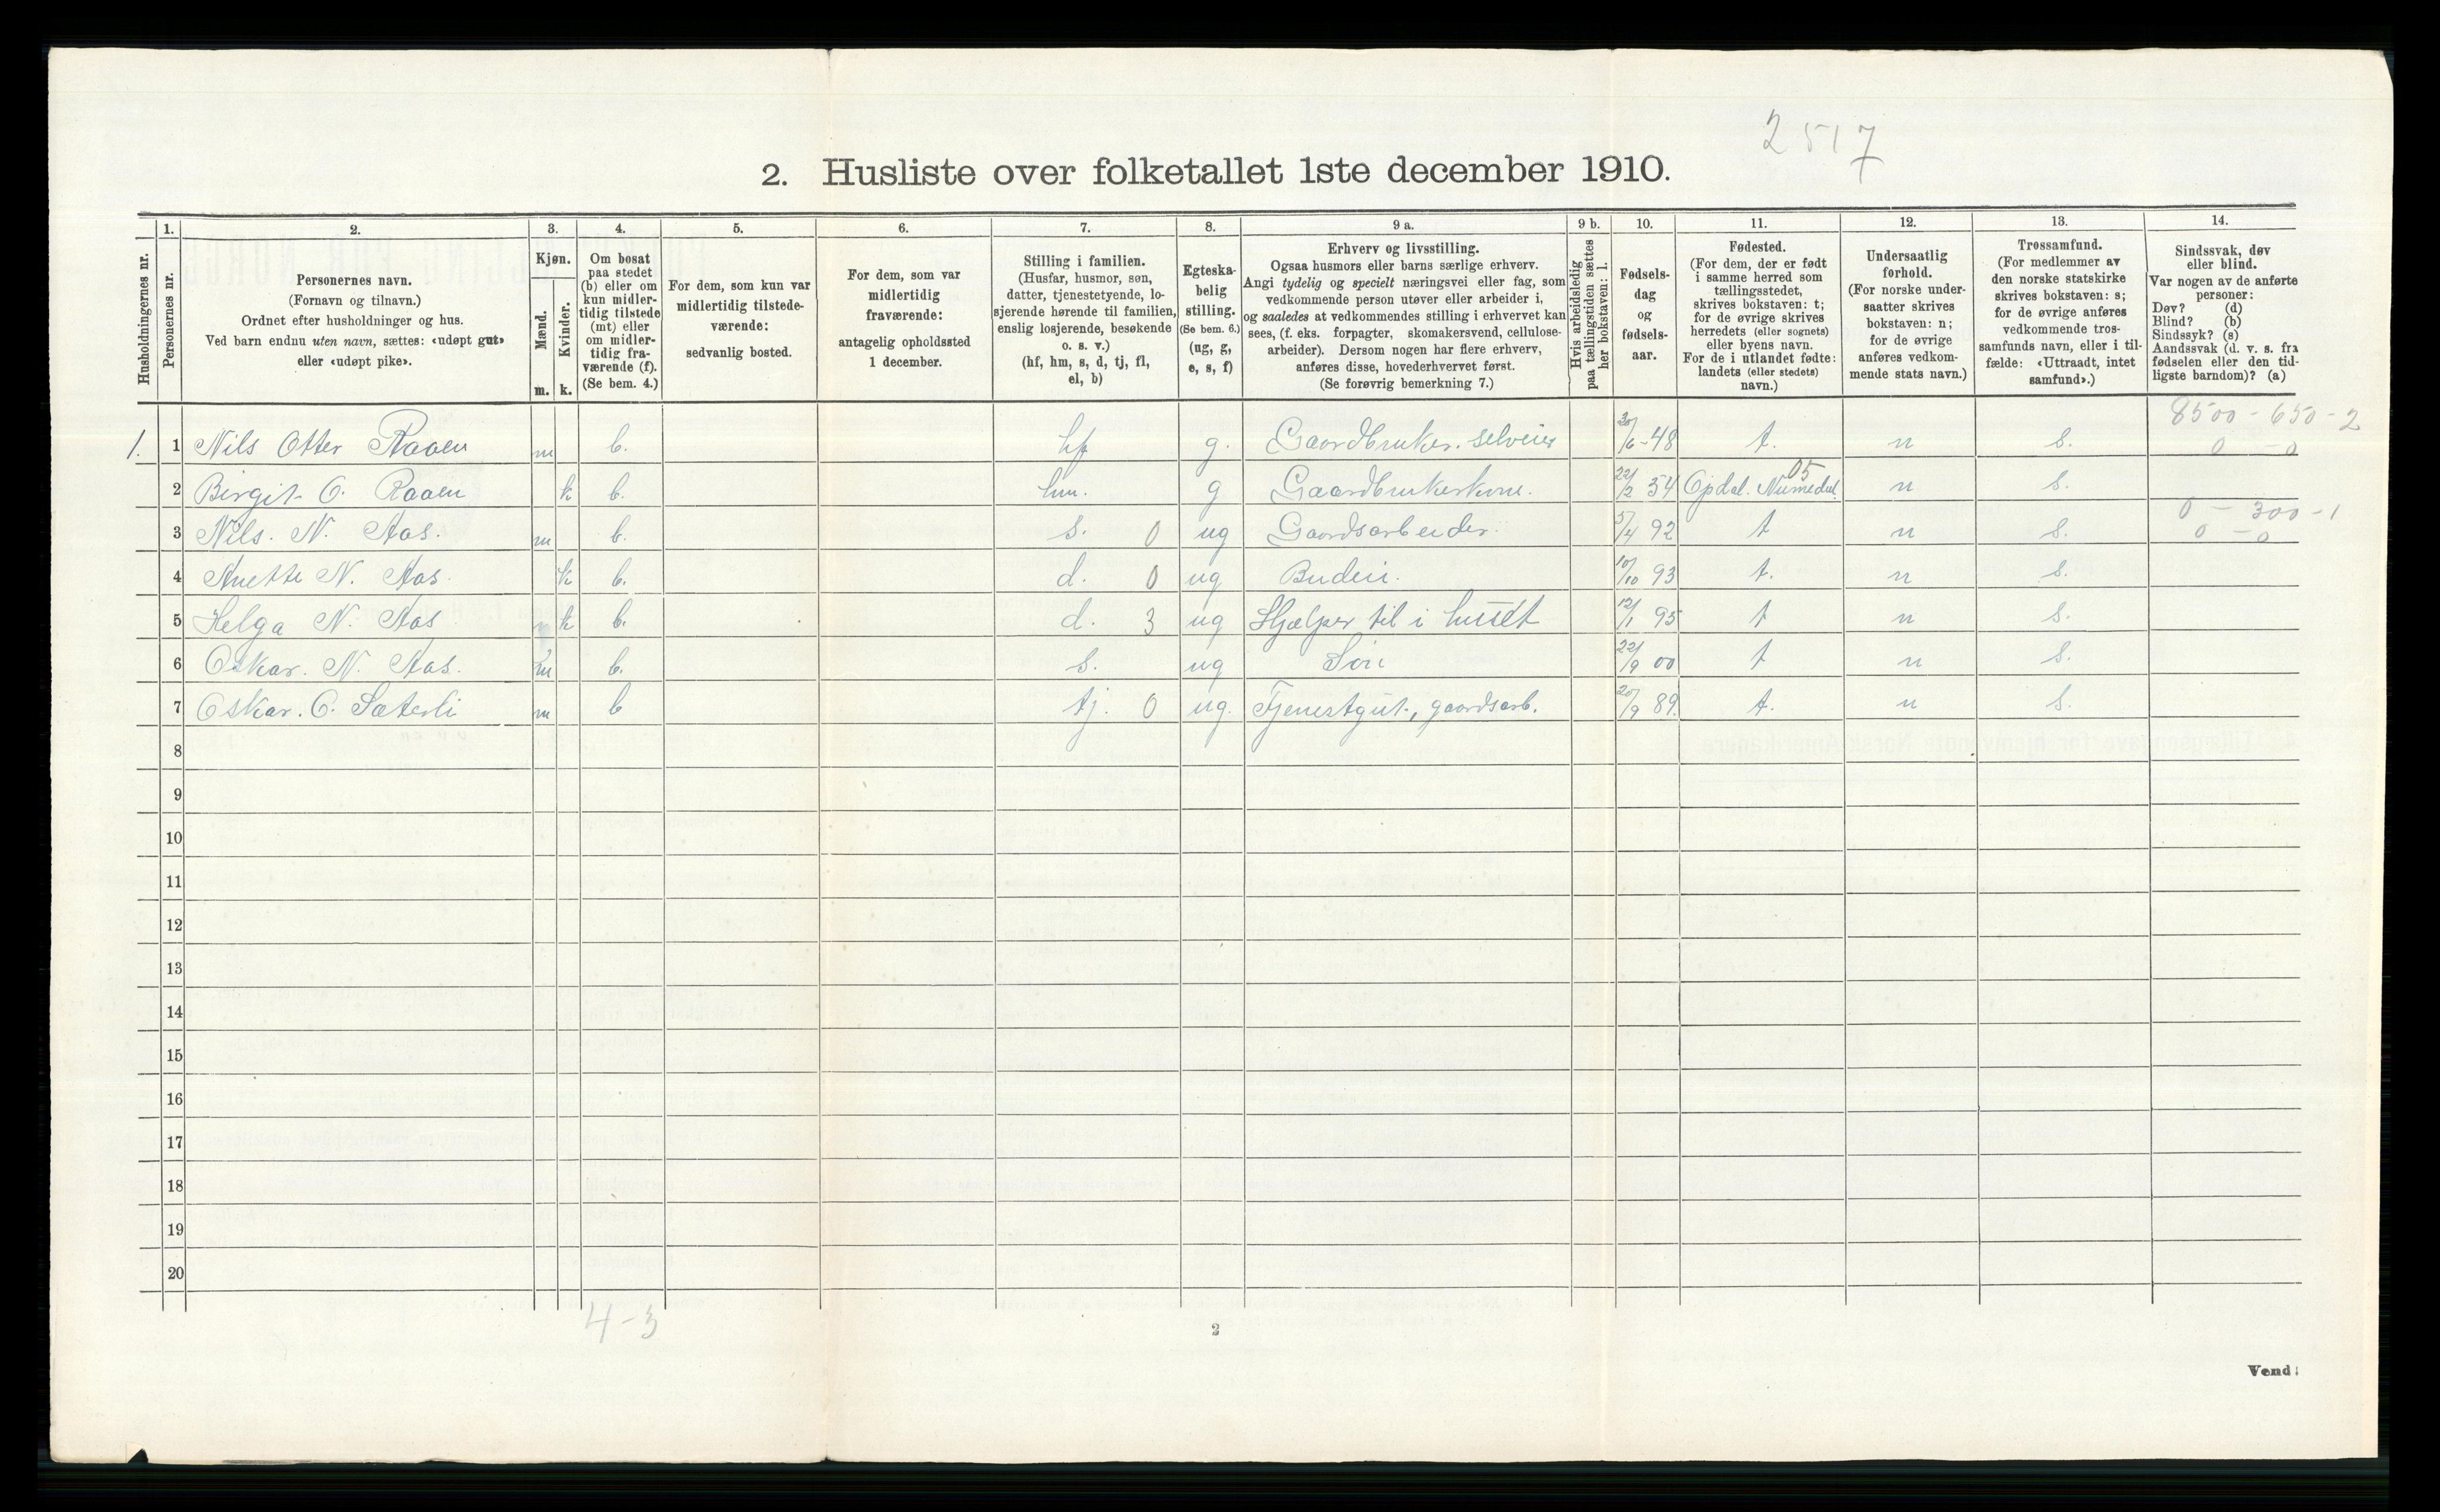 2517
2. Husliste over folketallet 1ste december 1910.
Husholdningernes nr.
1.
Personernes nr.
2.
Personernes navn.
(Fornavn og tilnavn.)
Ordnet efter husholdninger og hus.
Ved barn endnu uten navn, sættes: «udøpt gut»
eller «udøpt pike».
3.
Kjøn.
Mænd.
Kvinder.
m. k.
4.
Om bosat
paa stedet
(b) eller om
kun midler-
tidig tilstede
(mt) eller
om midler-
tidig fra-
værende (f).
(Se bem. 4.)
5.
For dem, som kun var
midlertidig tilstede-
værende:
sedvanlig bosted.
6.
For dem, som var
midlertidig
fraværende:
antagelig opholdssted
1 december.
7.
Stilling i familien.
(Husfar, husmor, søn,
datter, tjenestetyende, lo-
sjerende hørende til familien,
enslig losjerende, besøkende
o. s. v.)
(hf, hm, s, d, tj, fl,
el, b)
8.
Egteska-
belig
stilling.
(Se bem. 6.)
(ug, g,
e, s, f)
9 a.
Erhverv og livsstilling.
Ogsaa husmors eller barns særlige erhverv.
Angi tydelig og specielt næringsvei eller fag, som
vedkommende person utøver eller arbeider i,
og saaledes at vedkommendes stilling i erhvervet kan
sees, (f. eks. forpagter, skomakersvend, cellulose-
arbeider). Dersom nogen har flere erhverv,
anføres disse, hovederhvervet først.
(Se forøvrig bemerkning 7.)
9 b.
Hvis arbeidsledig
paa tællingstiden sættes
her bokstaven: l.
10.
Fødsels-
dag
og
fødsels-
aar.
11.
Fødested.
(For dem, der er født
i samme herred som
tællingsstedet,
skrives bokstaven: t;
for de øvrige skrives
herredets (eller sognets)
eller byens navn.
For de i utlandet fødte:
landets (eller stedets)
navn.)
12.
Undersaatlig
forhold.
(For norske under-
saatter skrives
bokstaven: n;
for de øvrige
anføres vedkom-
mende stats navn.)
13.
Trossamfund.
(For medlemmer av
den norske statskirke
skrives bokstaven: s;
for de øvrige anføres
vedkommende tros-
samfunds navn, eller i til-
fælde: «Uttraadt, intet
samfund».)
14.
Sindssvak, døv
eller blind.
Var nogen av de anførte
personer:
Døv? (d)
Blind? (b)
Sindssyk? (s)
Aandssvak (d. v. s. fra
fødselen eller den tid-
ligste barndom)? (a)
8500 - 650 - 2
1. 1 Nils Otter Raaen m b. hf g. Gaardbruker. selveier 30/6-48 t. n s. 0 - 0
2 Birgit O. Raaen k b. hm. g Gaardbrukerkone. 22/2 54 Opdal. Numedal 05 n s.
3 Nils. N. Aas. m b. s. 0 ug Gaardsarbeider. 5/4 92 t n s. 0 - 300 - 1
0 - 0
4 Anette N. Aas. k b. d. 0 ug Budeie. 10/10 93 t. n s.
5 Helga N. Aas k b. d. 3 ug Hjælper til i huset 12/1 95 t n s.
6 Oskar. N. Aas. m b. s. ug Søn 22/9 00 t n s.
7 Oskar. O. Sæterli m b tj. 0 ug. Tjenestgut, gaardsarb. 20/9 89. t. n s.
8
9
10
11
12
13
14
15
16
17
18
19
20
4-3
2
Vend!